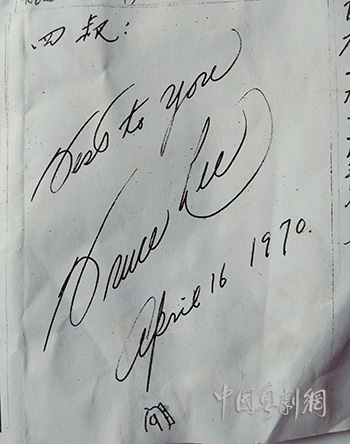 四叔：
Best to you
Bruce Lee
April 16 1970.
中国粤剧網